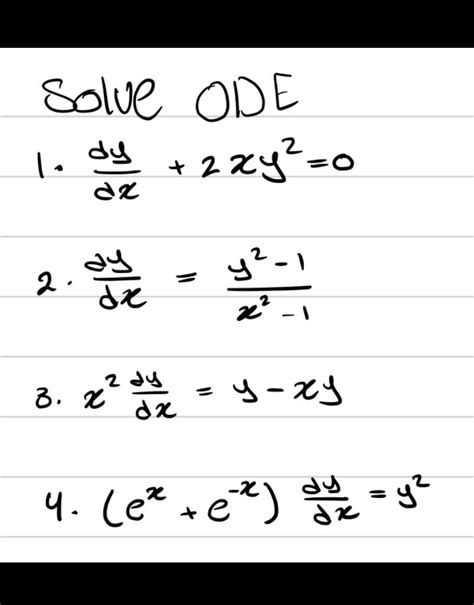 Solve ODE
1. dy/dx + 2xy² = 0
2. dy/dx = (y² - 1)/(x² - 1)
3. x² dy/dx = y - xy
4. (eˣ + e⁻ˣ) dy/dx = y²